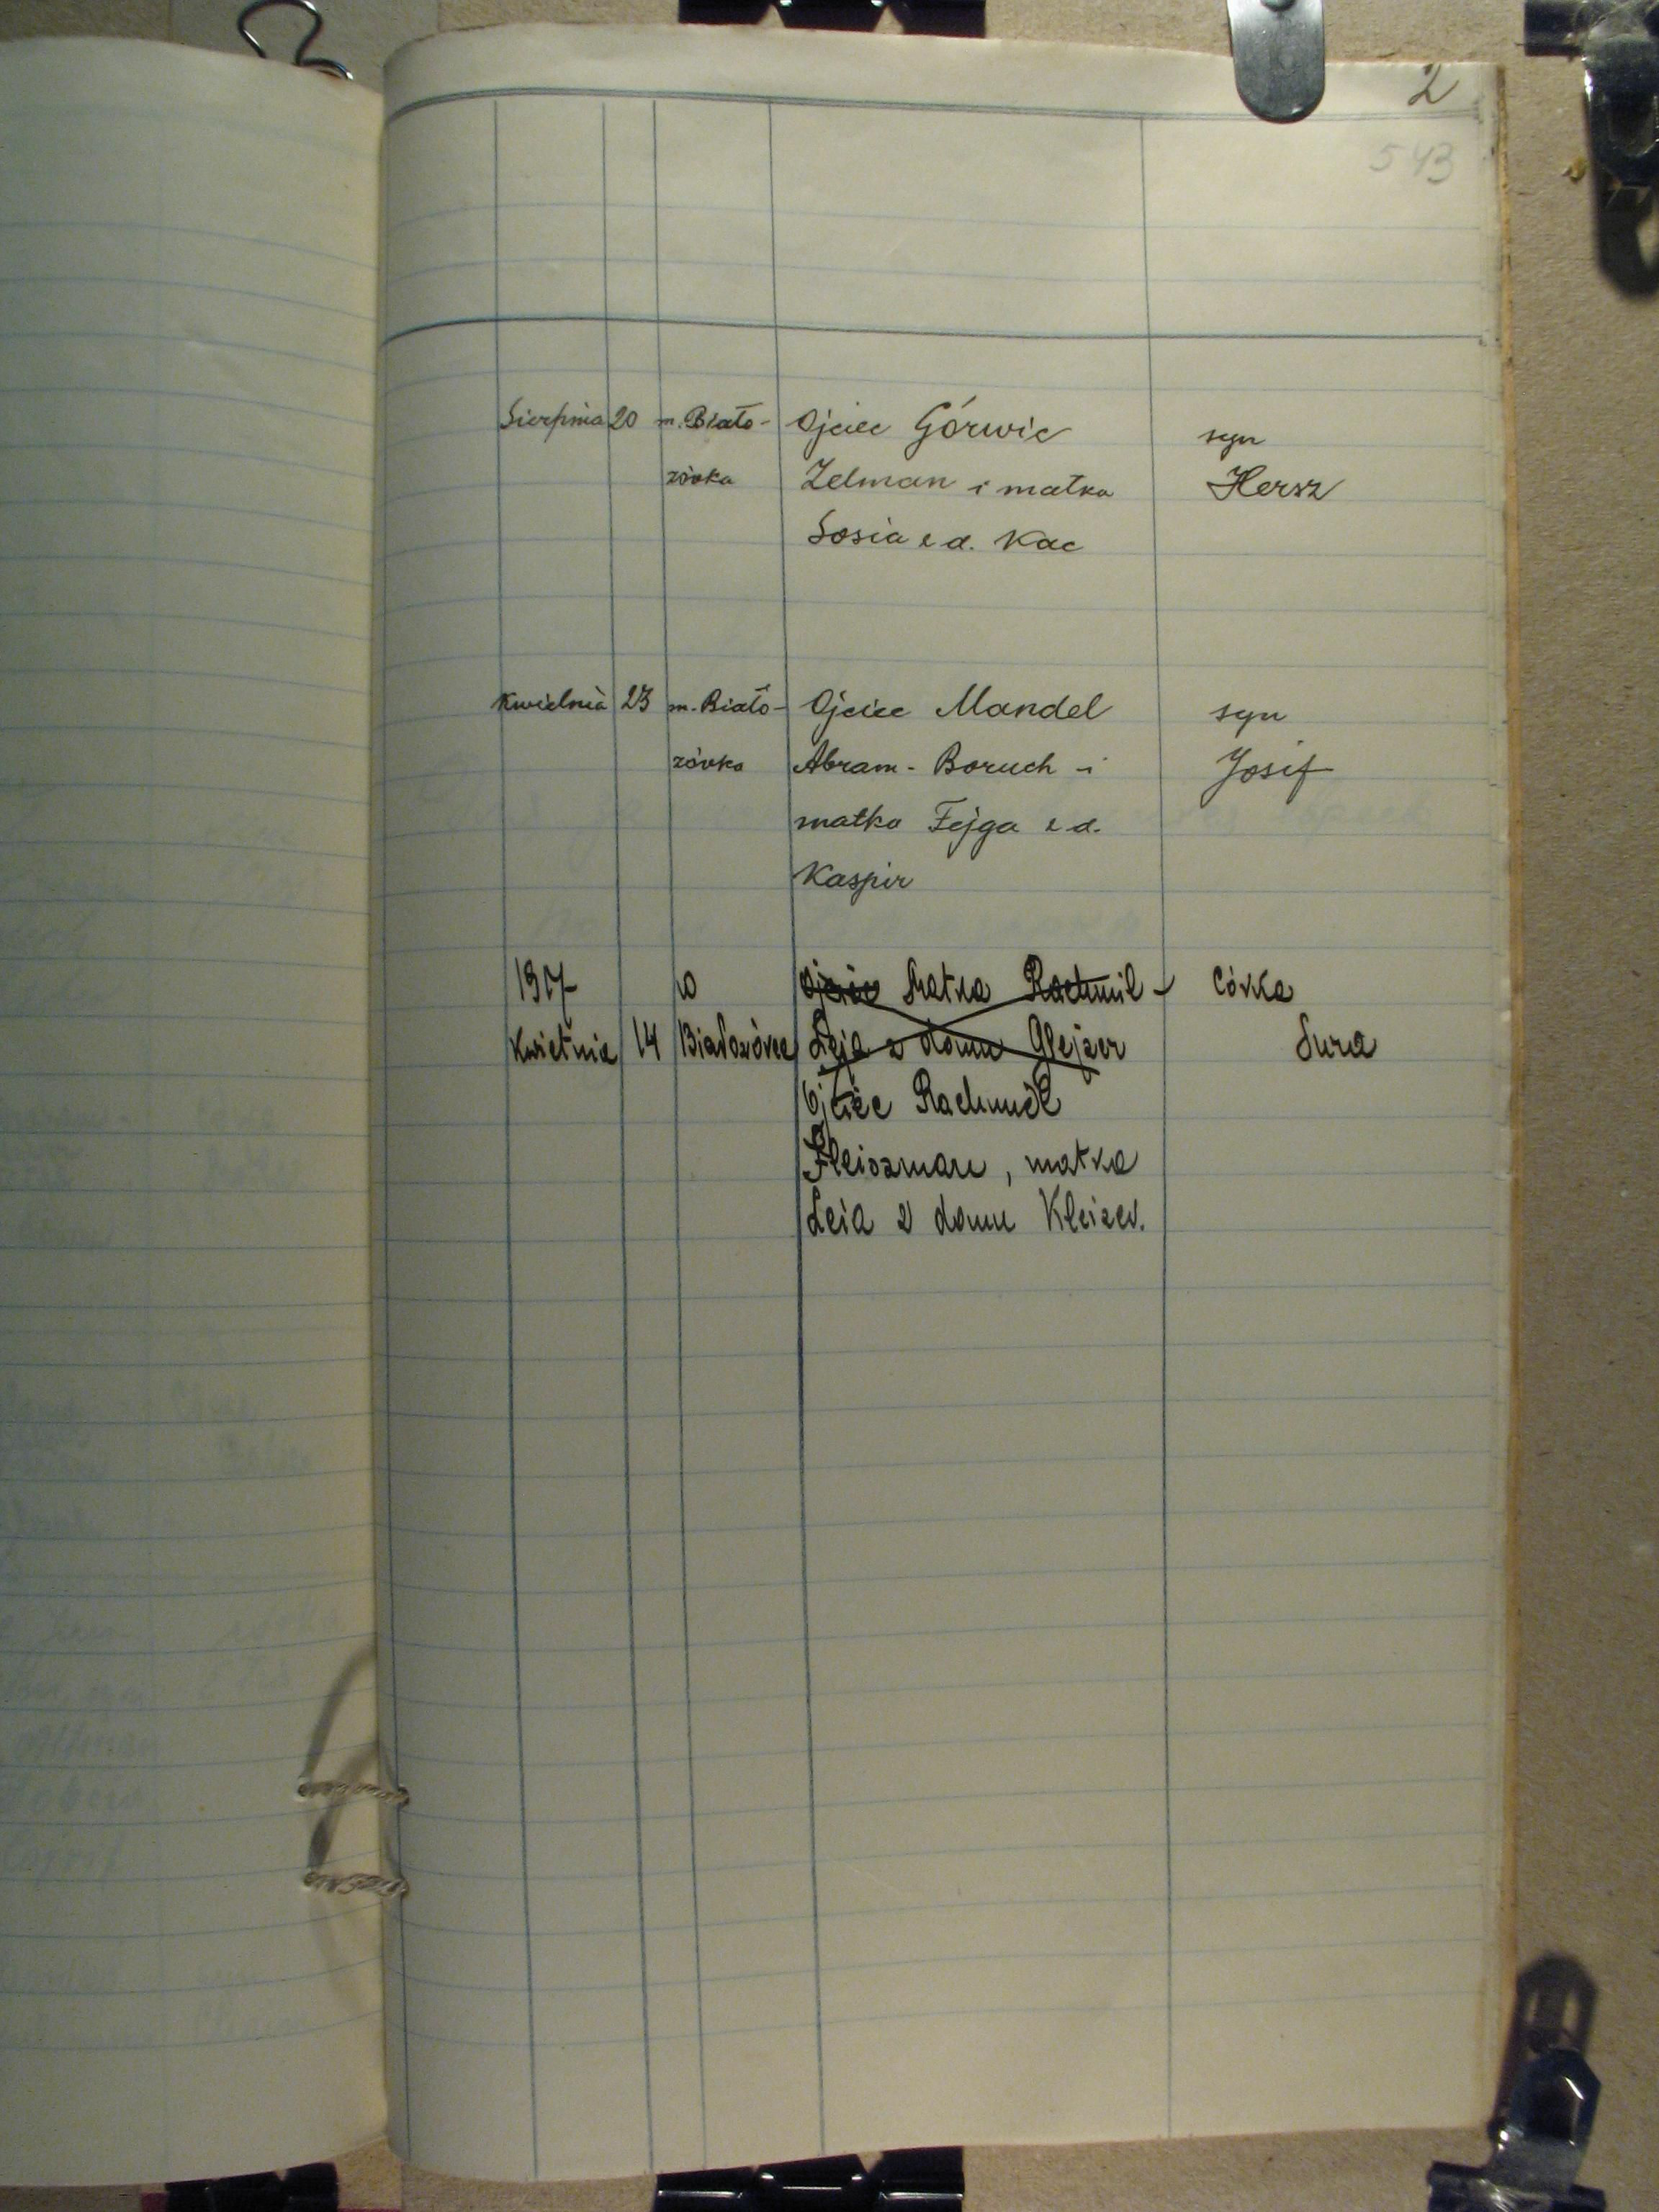 2
543
Sierpnia 20 m. Biało- Ojciec Górwic syn
zórka Zelman i matka Hersz
Sosia z d. Kac
Kwietnia 23 m. Biało- Ojciec Mandel syn
zórka Abram-Boruch i Josif
matka Fejga z d.
Kaspir
1917 w Ojciec Matka Rachmil- Córka
Kwietnia 14 Białozórce Leja z domu Glejzer Sura
Ojciec Rachmil
Fleiszman, matka
Leia z domu Kleizer.